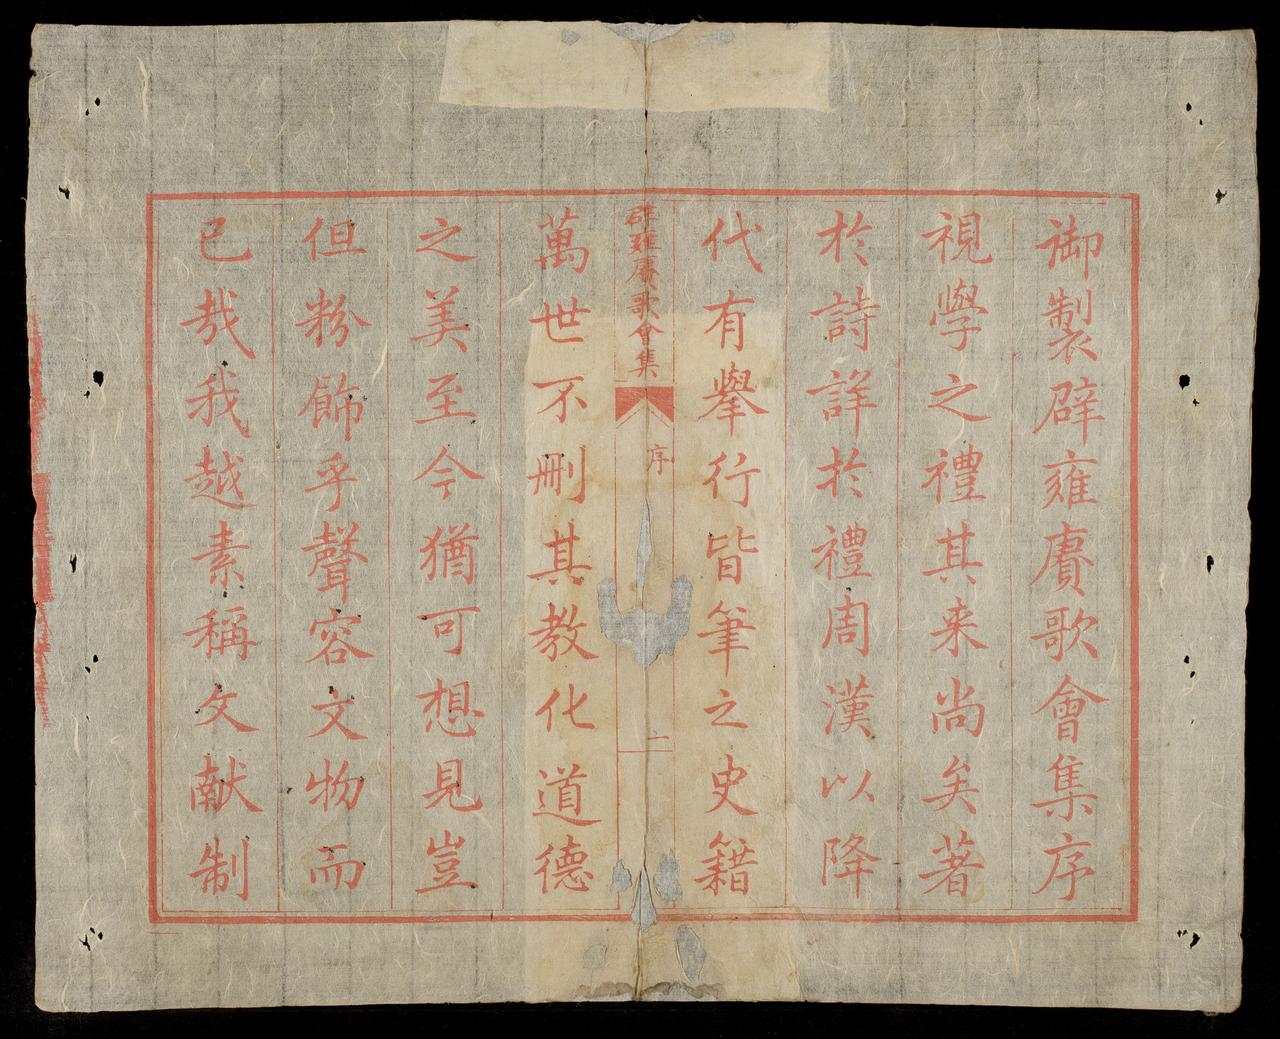 御製辟雍賡歌會集序
視學之禮其来尚矣著
於詩詳於禮周漢以降
代有舉行皆筆之史籍
辟雍賡歌會集
序
一
萬世不刪其教化道德
之美至今猶可想見豈
但粉飾乎聲容文物而
已哉我越素稱文献制